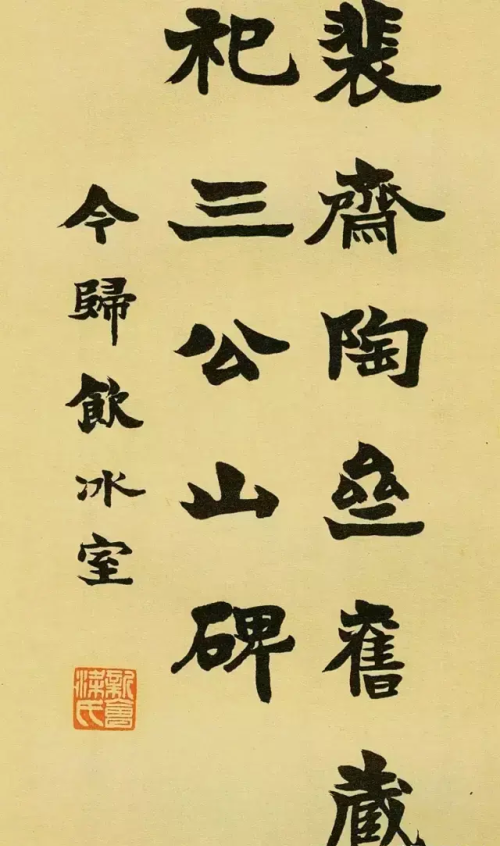 裴齋陶舊藏
祀三公山碑
今歸飲冰室
新會梁氏